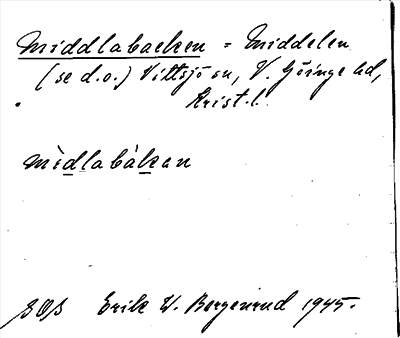 Middlabacken = Middelen
(se d.o.) Vittsjö sn, V. Göinge hd,
Krist. l.
mìdlabàkan
SOS Erik W. Bergenrud 1945.